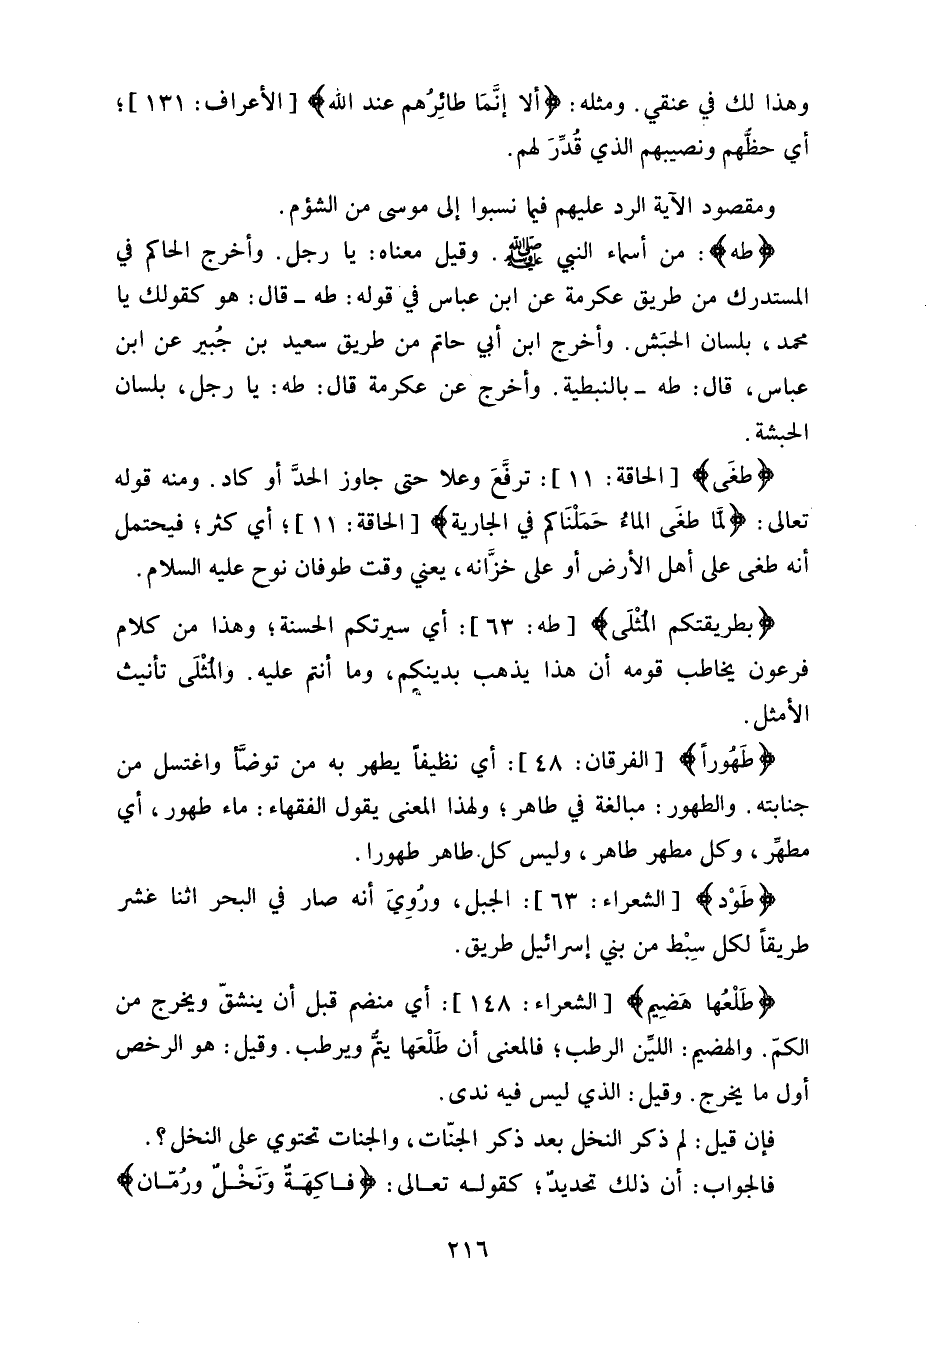 وهذا لك في عنقي. ومثله: ﴿ألا إنَّمَا طائِرُهم عند الله﴾ [الأعراف: ١٣١]؛
أي حظُّهم ونصيبهم الذي قُدِّرَ لهم.
ومقصود الآية الرد عليهم فيما نسبوا إلى موسى من الشؤم.
﴿طه﴾: من أسماء النبي ﷺ. وقيل معناه: يا رجل. وأخرج الحاكم في
المستدرك من طريق عكرمة عن ابن عباس في قوله: طه ـ قال: هو كقولك يا
محمد، بلسان الحبَش. وأخرج ابن أبي حاتم من طريق سعيد بن جُبير عن ابن
عباس، قال: طه ـ بالنبطية. وأخرج عن عكرمة قال: طه: يا رجل، بلسان
الحبشة.
﴿طغَى﴾ [الحاقة: ١١]: ترفَّعَ وعلا حتى جاوز الحدَّ أو كاد. ومنه قوله
تعالى: ﴿لمَّا طغَى الماءُ حَمَلْنَاكم في الجارية﴾ [الحاقة: ١١]؛ أي كثر؛ فيحتمل
أنه طغى على أهل الأرض أو على خزَّانه، يعني وقت طوفان نوح عليه السلام.
﴿بطريقتكم المُثْلَى﴾ [طه: ٦٣]: أي سيرتكم الحسنة؛ وهذا من كلام
فرعون يخاطب قومه أن هذا يذهب بدينكم، وما أنتم عليه. والمُثْلَى تأنيث
الأمثل.
﴿طَهُوراً﴾ [الفرقان: ٤٨]: أي نظيفاً يطهر به من توضَّأ واغتسل من
جنابته. والطهور: مبالغة في طاهر؛ ولهذا المعنى يقول الفقهاء: ماء طهور، أي
مطهِّر، وكل مطهر طاهر، وليس كل طاهر طهورا.
﴿طَوْد﴾ [الشعراء: ٦٣]: الجبل، ورُوِيَ أنه صار في البحر اثنا عشر
طريقاً لكل سِبْط من بني إسرائيل طريق.
﴿طَلْعُها هَضِيم﴾ [الشعراء: ١٤٨]: أي منضم قبل أن ينشقّ ويخرج من
الكمّ. والهضيم: الليِّن الرطب؛ فالمعنى أن طَلْعَها يتمُّ ويرطب. وقيل: هو الرخص
أول ما يخرج. وقيل: الذي ليس فيه ندى.
فإن قيل: لم ذكر النخل بعد ذكر الجنّات، والجنات تحتوي على النخل؟.
فالجواب: أن ذلك تحديدٌ؛ كقوله تعالى: ﴿فاكِهَةٌ ونَخْلٌ ورُمّان﴾
٢١٦